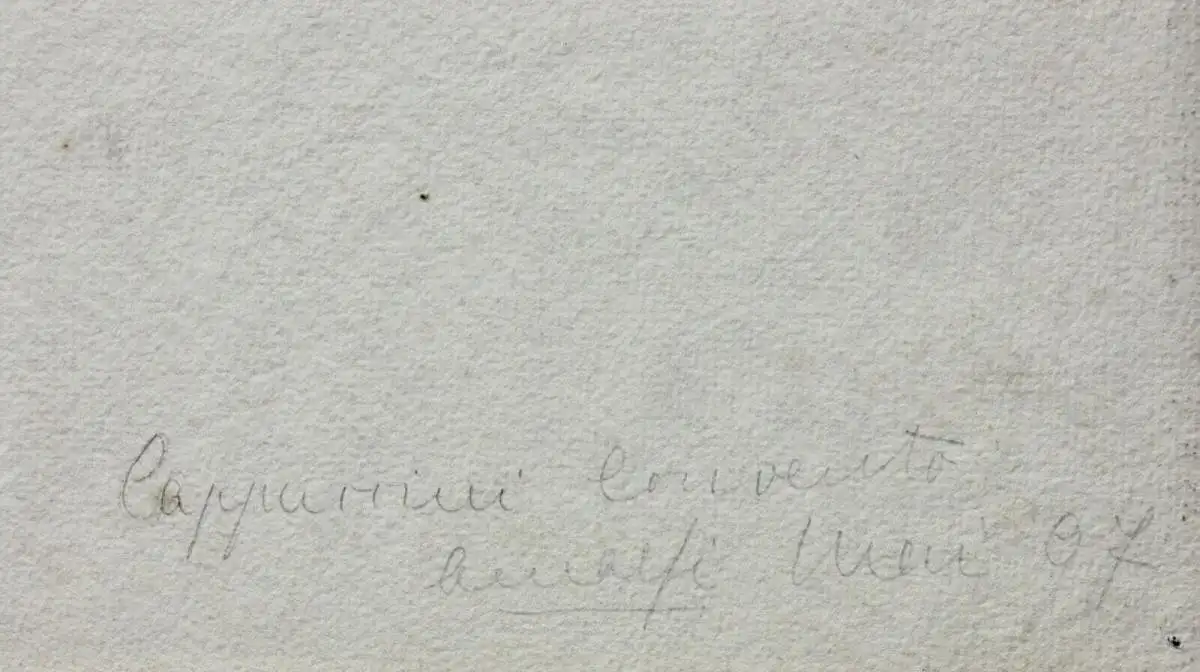 Cappuccini Convento
Amalfi Mai 97